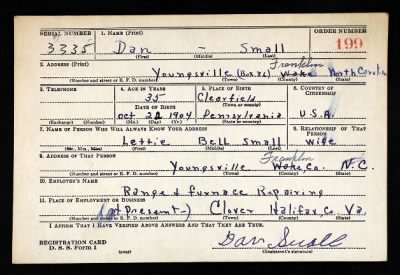 SERIAL NUMBER 1. NAME (Print) ORDER NUMBER
3335 Dan - Small 199
(First) (Middle) (Last)
2. ADDRESS (Print) Franklin
Youngsville (Box 96) Wake North Carolina
(Number and street or R. F. D. number) (Town) (County) (State)
3. TELEPHONE 4. AGE IN YEARS 5. PLACE OF BIRTH 6. COUNTRY OF CITIZENSHIP
35 Clearfield
(Town or county)
DATE OF BIRTH
Oct 22 1904 Pennsylvania U.S.A.
(Exchange) (Number) (Mo.) (Day) (Yr.) (State or country)
7. NAME OF PERSON WHO WILL ALWAYS KNOW YOUR ADDRESS 8. RELATIONSHIP OF THAT PERSON
Lettie Bell Small wife
(Mr., Mrs., Miss) (First) (Middle) (Last)
9. ADDRESS OF THAT PERSON Franklin
Youngsville Wake Co. N.C.
(Number and street or R. F. D. number) (Town) (County) (State)
10. EMPLOYER'S NAME
Range & Furnace Repairing
11. PLACE OF EMPLOYMENT OR BUSINESS
(at Present-) Clover Halifax, Co Va.
(Number and street or R. F. D. number) (Town) (County) (State)
I AFFIRM THAT I HAVE VERIFIED ABOVE ANSWERS AND THAT THEY ARE TRUE.
REGISTRATION CARD
D. S. S. Form 1 (over) Dan Small
(Registrant's signature)